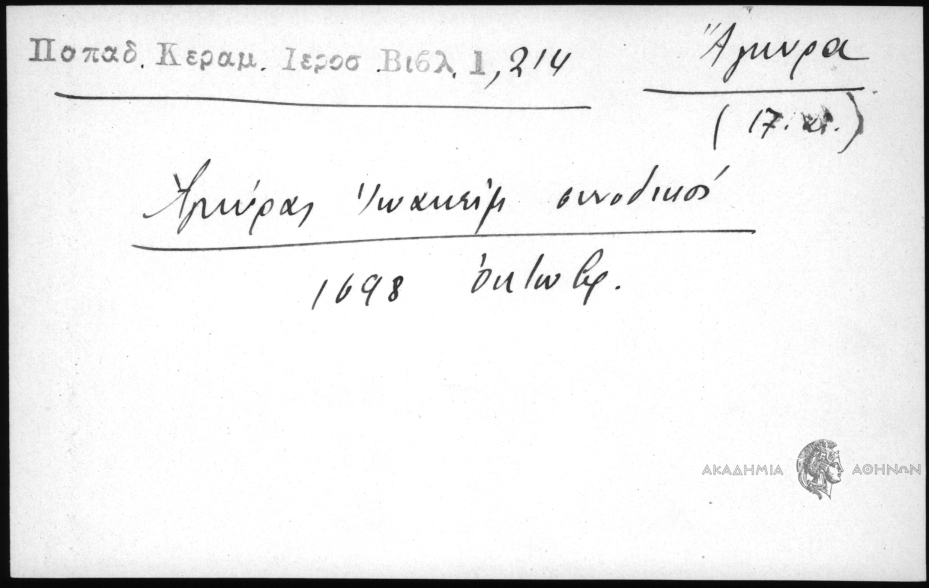 Παπαδ. Κεραμ. Ιεροσ Βιβλ 1, 214
Ἄγκυρα
(17. αἰ.)
Ἀγκύρας Ἰωακείμ συνοδικός
1698 Ὀκτωβρ.
ΑΚΑΔΗΜΙΑ ΑΘΗΝΩΝ